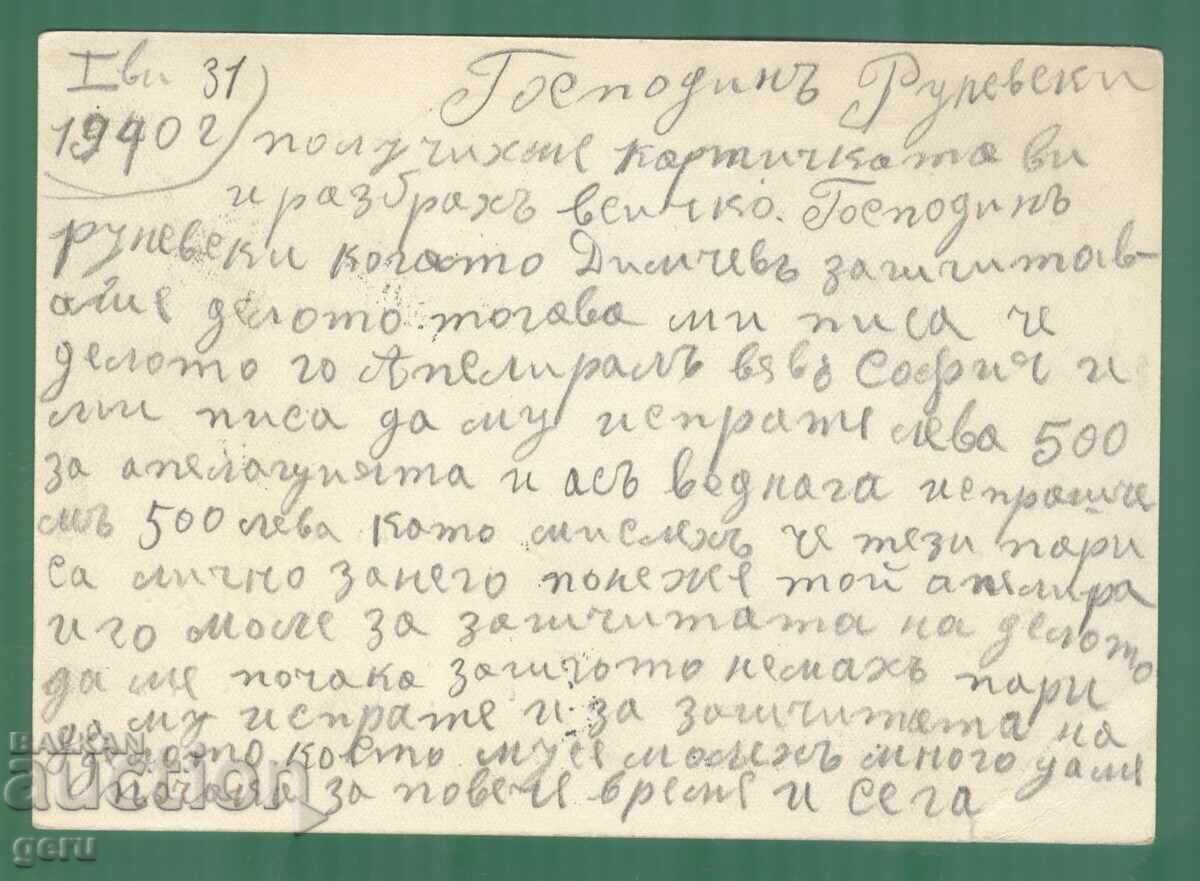 Iви 31
1940 г
Господинъ Руневски
получихме картичката ви
и разбрахъ всичко. Господинъ
Руневски когато Димчевъ зашчитав-
аше делото тогава ми писа че
делото го Апелирамъ вявъ София и
ми писа да му испрате лева 500
за апелацията и асъ веднага испрашче
мъ 500 лева като мислехъ че тези пари
са лично занего понеже той апелира
и го моле за зашчитата на делото
да ме почака зашчото немахъ пари
да му испрате и за зашчитата на
делото което му се молехъ много да ме
почака за повече време и сега
BALKAN
auction
geru